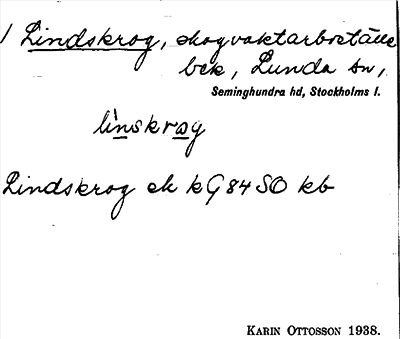 1 Lindskrog, skogvaktarboställe
bek, Lunda sn,
Seminghundra hd, Stockholms l.
linskrog
Lindskrog ek kG84SO kb
KARIN OTTOSSON 1938.